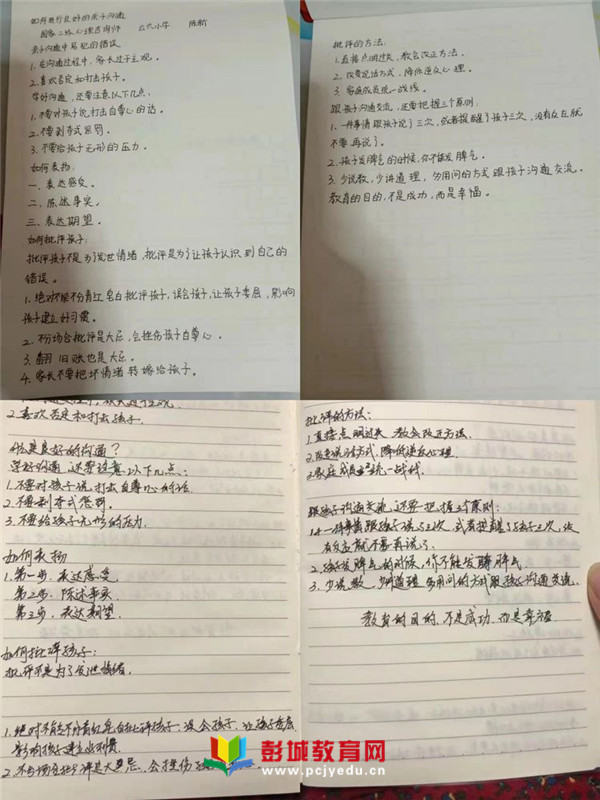 如何进行良好的亲子沟通
国家二级心理咨询师
亲子沟通中易犯的错误
1. 在沟通过程中，家长过于主观。
2. 喜欢否定和打击孩子。
学好沟通，还要注意以下几点：
1. 不要对孩子说打击自尊心的话。
2. 不要剥夺式惩罚。
3. 不要给孩子无形的压力。
如何表扬：
一、表达感受。
二、陈述事实。
三、表达期望。
如何批评孩子：
批评孩子不是为了发泄情绪，批评是为了让孩子认识到自己的
错误。
1. 绝对不能不分青红皂白批评孩子，误会孩子，让孩子委屈，影响
孩子建立好习惯。
2. 不分场合批评是大忌，会挫伤孩子自尊心。
3. 翻旧账也是大忌。
4. 家长不要把坏情绪转嫁给孩子。
批评的方法：
1. 直接点明过失，教会改正方法。
2. 改变说话方式，降低逆反心理。
3. 家庭成员统一战线。
跟孩子沟通交流，还要把握三个原则：
1. 一件事情跟孩子说了三次，或者提醒了孩子三次，没有反应就
不要再说了。
2. 孩子发脾气的时候，你不能发脾气。
3. 少说教，少讲道理，多用问的方式跟孩子沟通交流。
教育的目的，不是成功，而是幸福。
2. 喜欢否定和打击孩子。
什么是良好的沟通？
学好沟通，还要注意以下几点：
1. 不要对孩子说打击自尊心的话
2. 不要剥夺式惩罚。
3. 不要给孩子无形的压力。
如何表扬
1. 第一步，表达感受
第2步：陈述事实
第3步：表达期望
如何批评孩子：
批评不是为了发泄情绪。
1. 绝对不能不分青红皂白批评孩子，误会孩子，让孩子委屈
影响孩子建立好习惯
2. 不分场合批评是大忌，会挫伤
批评的方法：
1. 直接点明过失 教会改正方法
2. 改变说话方式，降低逆反心理
3. 家庭成员要统一战线
跟孩子沟通交流，还要把握三个原则：
1. 一件事情跟孩子说了三次，或者提醒了孩子三次，没
有反应就不要再说了。
2. 孩子发脾气的时候，你不能发脾气
3. 少说教，少讲道理 多用问的方式跟孩子沟通交流。
教育的目的，不是成功，而是幸福
彭城教育网
www.pcjyedu.cn